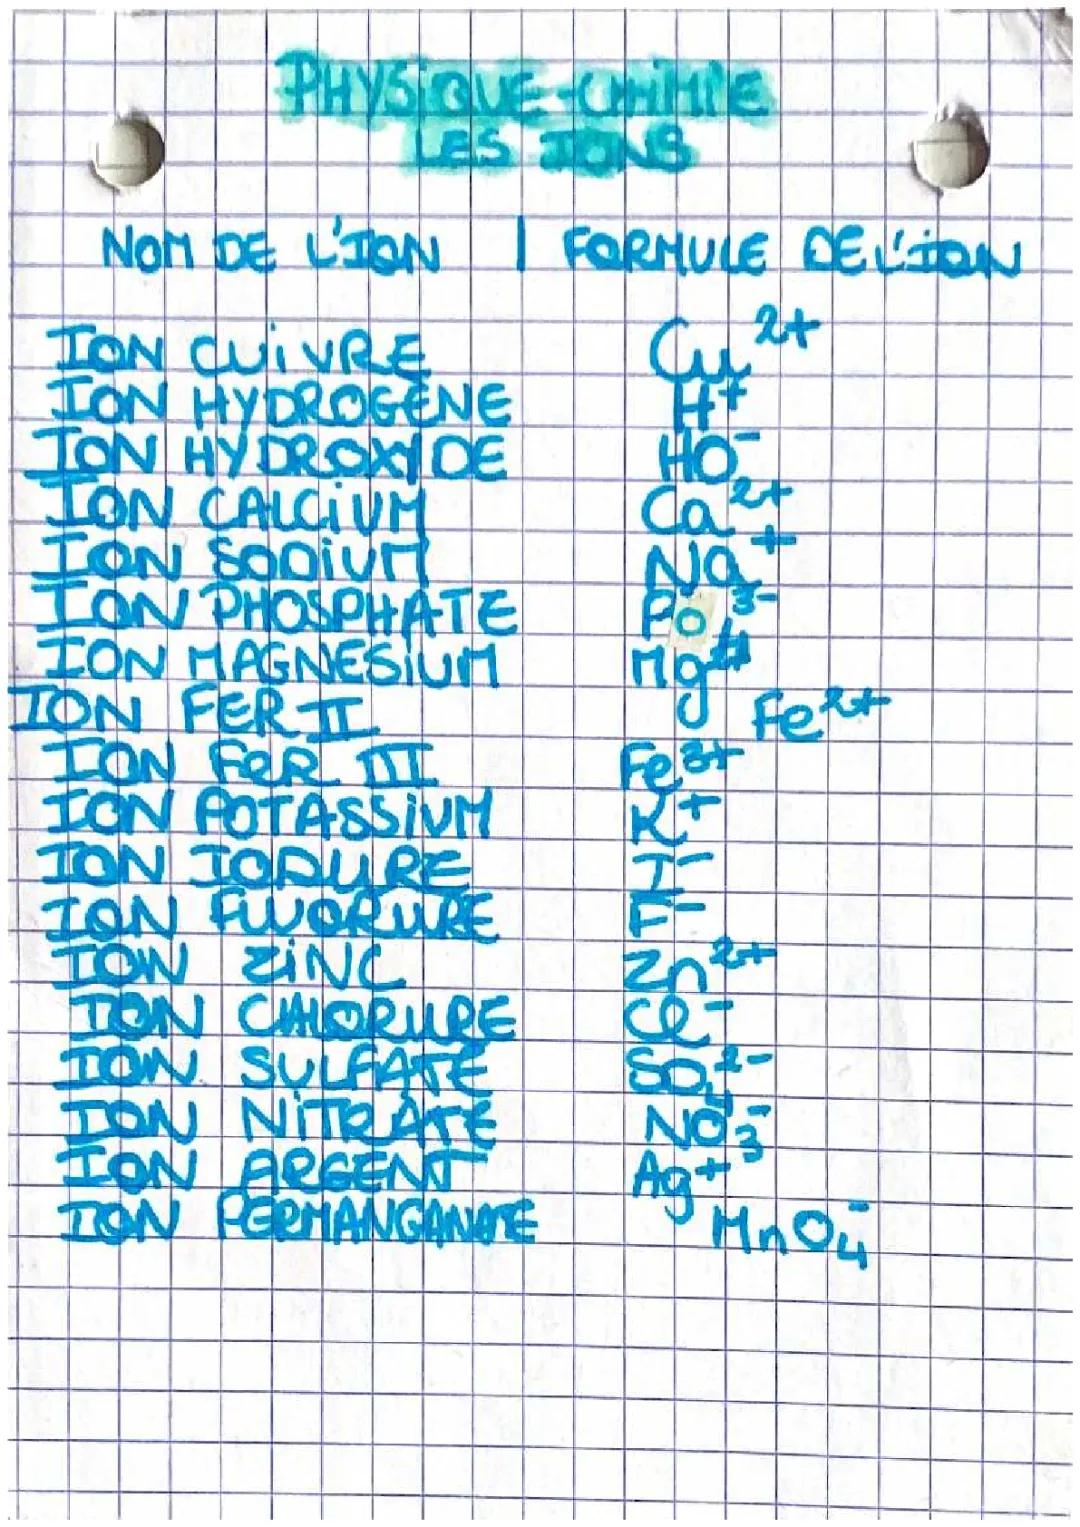 PHYSIQUE-CHIMIE
LES IONS
NOM DE L'ION | FORMULE DE L'ION
ION CUIVRE Cu²⁺
ION HYDROGÈNE H⁺
ION HYDROXYDE HO⁻
ION CALCIUM Ca²⁺
ION SODIUM Na⁺
ION PHOSPHATE PO³⁻
ION MAGNESIUM Mg
ION FER II Fe²⁺
ION FER III Fe³⁺
ION POTASSIUM K⁺
ION IODURE I⁻
ION FLUORURE F⁻
ION ZINC Zn²⁺
ION CHLORURE Cl⁻
ION SULFATE SO₄²⁻
ION NITRATE NO₃⁻
ION ARGENT Ag⁺
ION PERMANGANATE MnO₄⁻